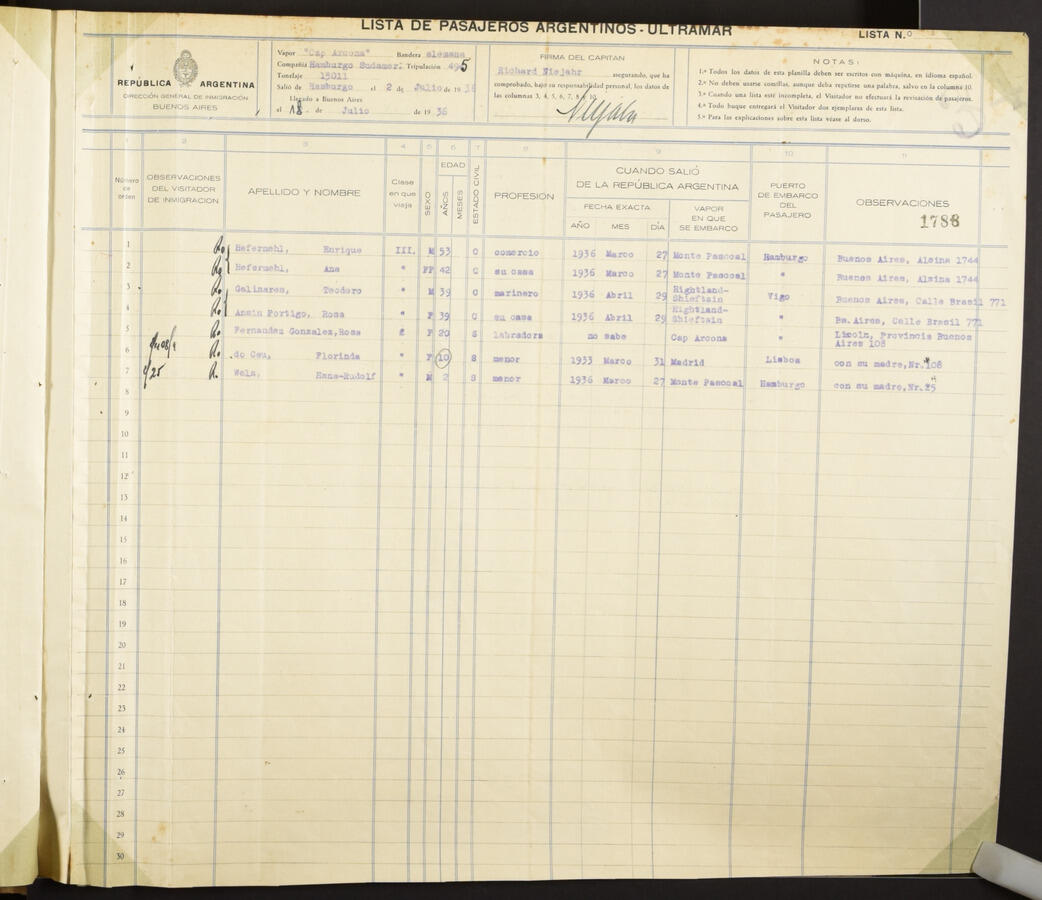 LISTA DE PASAJEROS ARGENTINOS - ULTRAMAR
LISTA N.º
REPÚBLICA ARGENTINA
DIRECCIÓN GENERAL DE INMIGRACIÓN
BUENOS AIRES
Vapor "Cap Arcona" Bandera alemana
Compañía Hamburgo Sudamer. Tripulación 495
Tonelaje 15011
Salió de Hamburgo el 2 de Julio de 1936
Llegado a Buenos Aires
el 18 de Julio de 1936
FIRMA DEL CAPITAN
Richard Niejahr asegurando, que ha
comprobado, bajo su responsabilidad personal, los datos de
las columnas 3, 4, 5, 6, 7, 8 y 10.
Niejahr
NOTAS:
1.ª Todos los datos de esta planilla deben ser escritos con máquina, en idioma español.
2.ª No deben usarse comillas, aunque deba repetirse una palabra, salvo en la columna 10.
3.ª Cuando una lista esté incompleta, el Visitador no efectuará la revisación de pasajeros.
4.ª Todo buque entregará el Visitador dos ejemplares de esta lista.
5.ª Para las explicaciones sobre esta lista véase al dorso.
1 2 3 4 5 6 7 8 9 10 11
Número de orden
OBSERVACIONES DEL VISITADOR DE INMIGRACION
APELLIDO Y NOMBRE
Clase en que viaja
SEXO
EDAD
AÑOS
MESES
ESTADO CIVIL
PROFESIÓN
CUANDO SALIÓ DE LA REPÚBLICA ARGENTINA
FECHA EXACTA
AÑO MES DÍA
VAPOR EN QUE SE EMBARCO
PUERTO DE EMBARCO DEL PASAJERO
OBSERVACIONES
1788
1 Hafermehl, Enrique III. M 53 C comercio 1936 Marco 27 Monte Pascoal Hamburgo Buenos Aires, Alsina 1744
2 Hafermehl, Ana " F 42 C su casa 1936 Marco 27 Monte Pascoal " Buenos Aires, Alsina 1744
3 Galinares, Teodoro " M 39 C marinero 1936 Abril 29 Hightland-Shieftain Vigo Buenos Aires, Calle Brasil 771
4 Ansin Fortigo, Rosa " F 39 C su casa 1936 Abril 29 Hightland-Shieftain " Bs. Aires, Calle Brasil 771
5 Fernandez Gonzalez, Rosa F 20 S labradora no sabe Cap Arcona " Lincoln, Provincia Buenos Aires 108
6 do Ceu, Florinda " F 10 S menor 1933 Marco 31 Madrid Lisboa con su madre, Nr. 108
7 25 Wels, Hans-Rudolf " M 2 S menor 1936 Marco 27 Monte Pascoal Hamburgo con su madre, Nr. 25
8
9
10
11
12
13
14
15
16
17
18
19
20
21
22
23
24
25
26
27
28
29
30